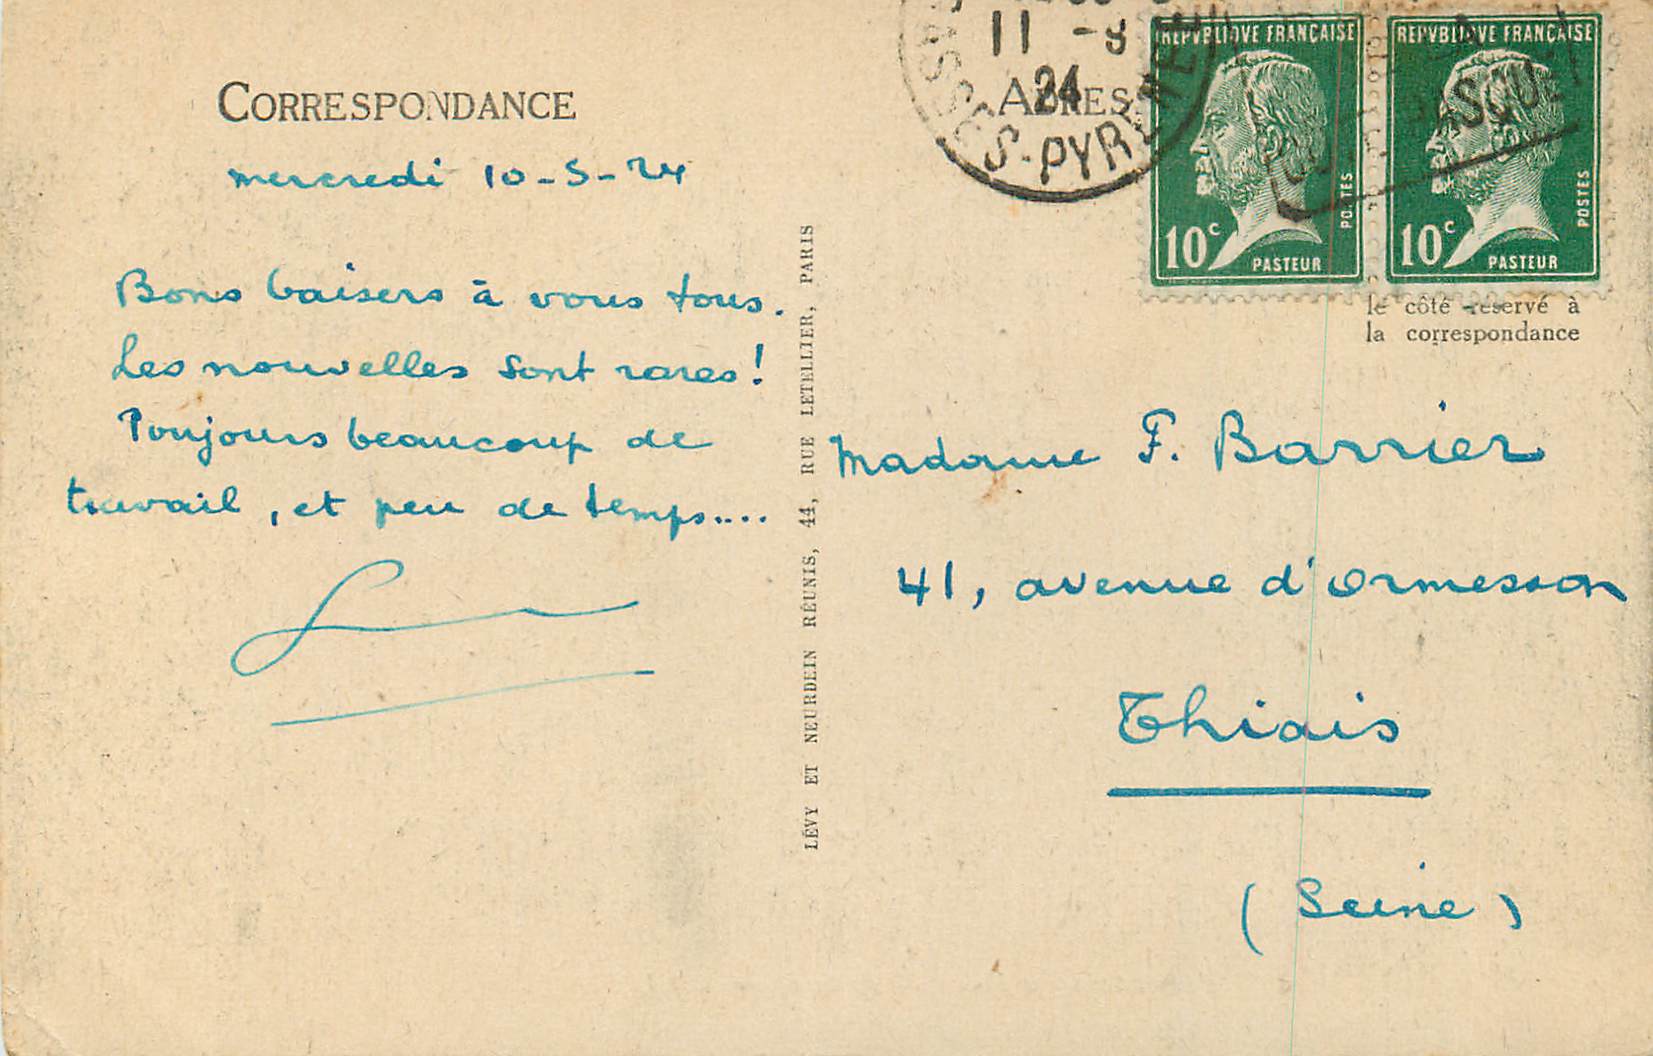 CORRESPONDANCE
mercredi 10-S-24
Bons baisers à vous tous.
Les nouvelles sont rares!
Toujours beaucoup de
travail, et peu de temps....
LÉVY ET NEURDEIN RÉUNIS, 44, RUE LETELLIER, PARIS
11 -9
24
ASSES-PYRENE
ADRESS
REPVBLIQVE FRANÇAISE
POSTES
10c
PASTEUR
REPVBLIQVE FRANÇAISE
POSTES
10c
PASTEUR
BASQUE
le côté reservé à
la correspondance
Madame F. Barrier
41, avenue d'Ormesson
Thiais
(Seine)